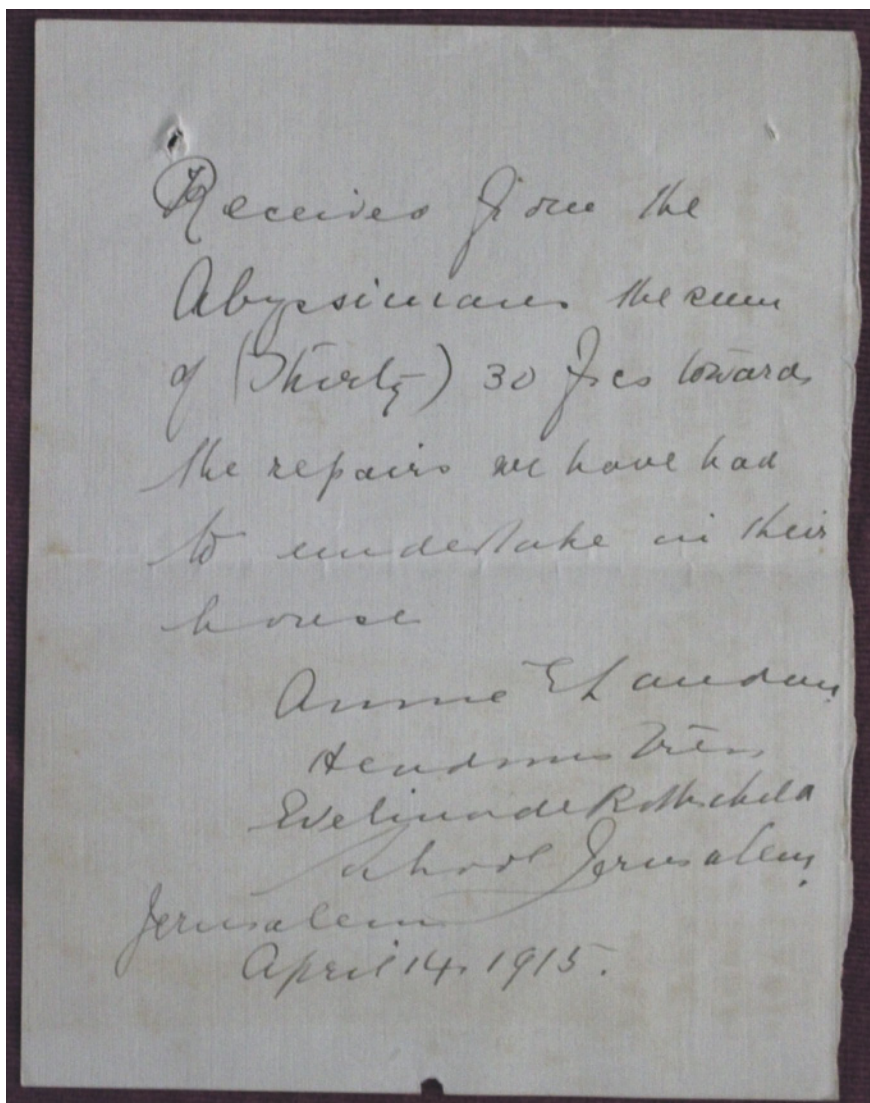 Received from the
Abyssinians the sum
of (Thirty) 30 Frcs towards
the repairs we have had
to undertake in their
house
Annie E Landau
Headmistress
Evelina de Rothschild
School Jerusalem,
Jerusalem
April 14, 1915.